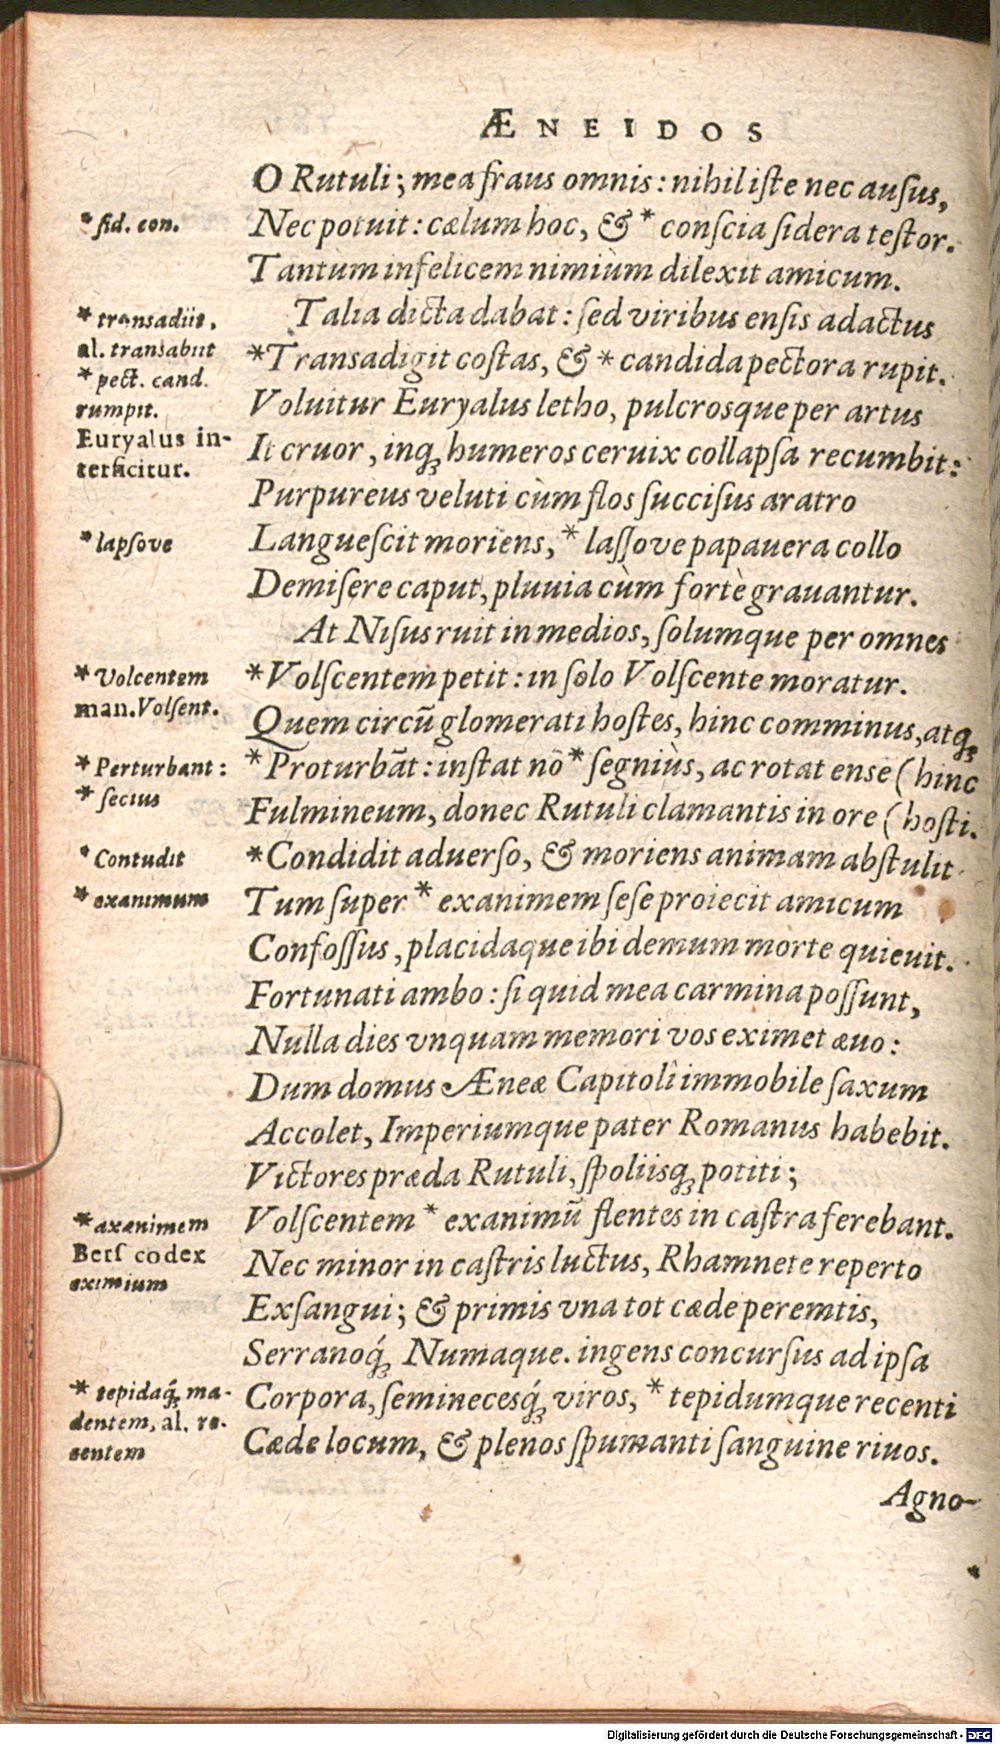 ÆNEIDOS
O Rutuli; mea fraus omnis: nihil iſte nec auſus,
* ſid. con.
Nec potuit: cælum hoc, & * conſcia ſidera teſtor.
Tantùm infelicem nimiùm dilexit amicum.
Talia dicta dabat: ſed viribus enſis adactus
* transadiit,
al. transabiit
*Transadigit coſtas, & * candida pectora rupit.
* pect. cand.
rumpit.
Voluitur Euryalus letho, pulcrosque per artus
Euryalus in-
terficitur.
It cruor, inq; humeros ceruix collapſa recumbit:
Purpureus veluti cùm flos ſucciſus aratro
* lapſove
Langueſcit moriens, * laſſove papauera collo
Demiſere caput, pluuia cùm fortè grauantur.
At Niſus ruit in medios, ſolumque per omnes
* Volcentem
man. Volſent.
*Volſcentem petit: in ſolo Volſcente moratur.
Quem circũ glomerati hoſtes, hinc comminus, atq;
* Perturbant:
* ſecius
*Proturbãt: inſtat nõ * ſegniùs, ac rotat enſe (hinc
Fulmineum, donec Rutuli clamantis in ore (hoſti.
* Contudit
*Condidit aduerſo, & moriens animam abſtulit
* exanimum
Tum ſuper * exanimem ſeſe proiecit amicum
Confoſſus, placidaque ibi demum morte quieuit.
Fortunati ambo: ſi quid mea carmina poſſunt,
Nulla dies vnquam memori vos eximet æuo:
Dum domus Æneæ Capitolî immobile ſaxum
Accolet, Imperiumque pater Romanus habebit.
Victores præda Rutuli, ſpoliisq; potiti;
* axanimem
Berſ codex
eximium
Volſcentem * exanimũ flentes in caſtra ferebant.
Nec minor in caſtris luctus, Rhamnete reperto
Exſangui; & primis vna tot cæde peremtis,
Serranoq́; Numaque. ingens concurſus ad ipſa
* tepidaq́; ma-
dentem, al. re-
centem
Corpora, ſeminecesq́; viros, * tepidumque recenti
Cæde locum, & plenos ſpumanti ſanguine riuos.
Agno-
Digitalisierung gefördert durch die Deutsche Forschungsgemeinschaft - DFG